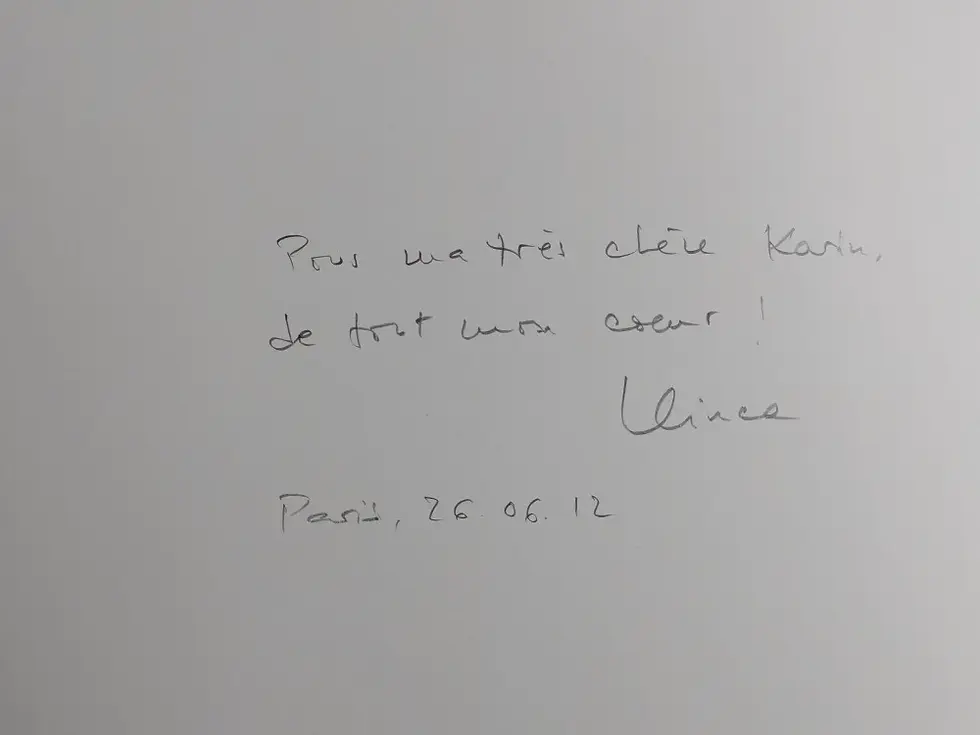 Pour ma très chère Karin,
de tout mon coeur !
Vince
Paris, 26.06.12